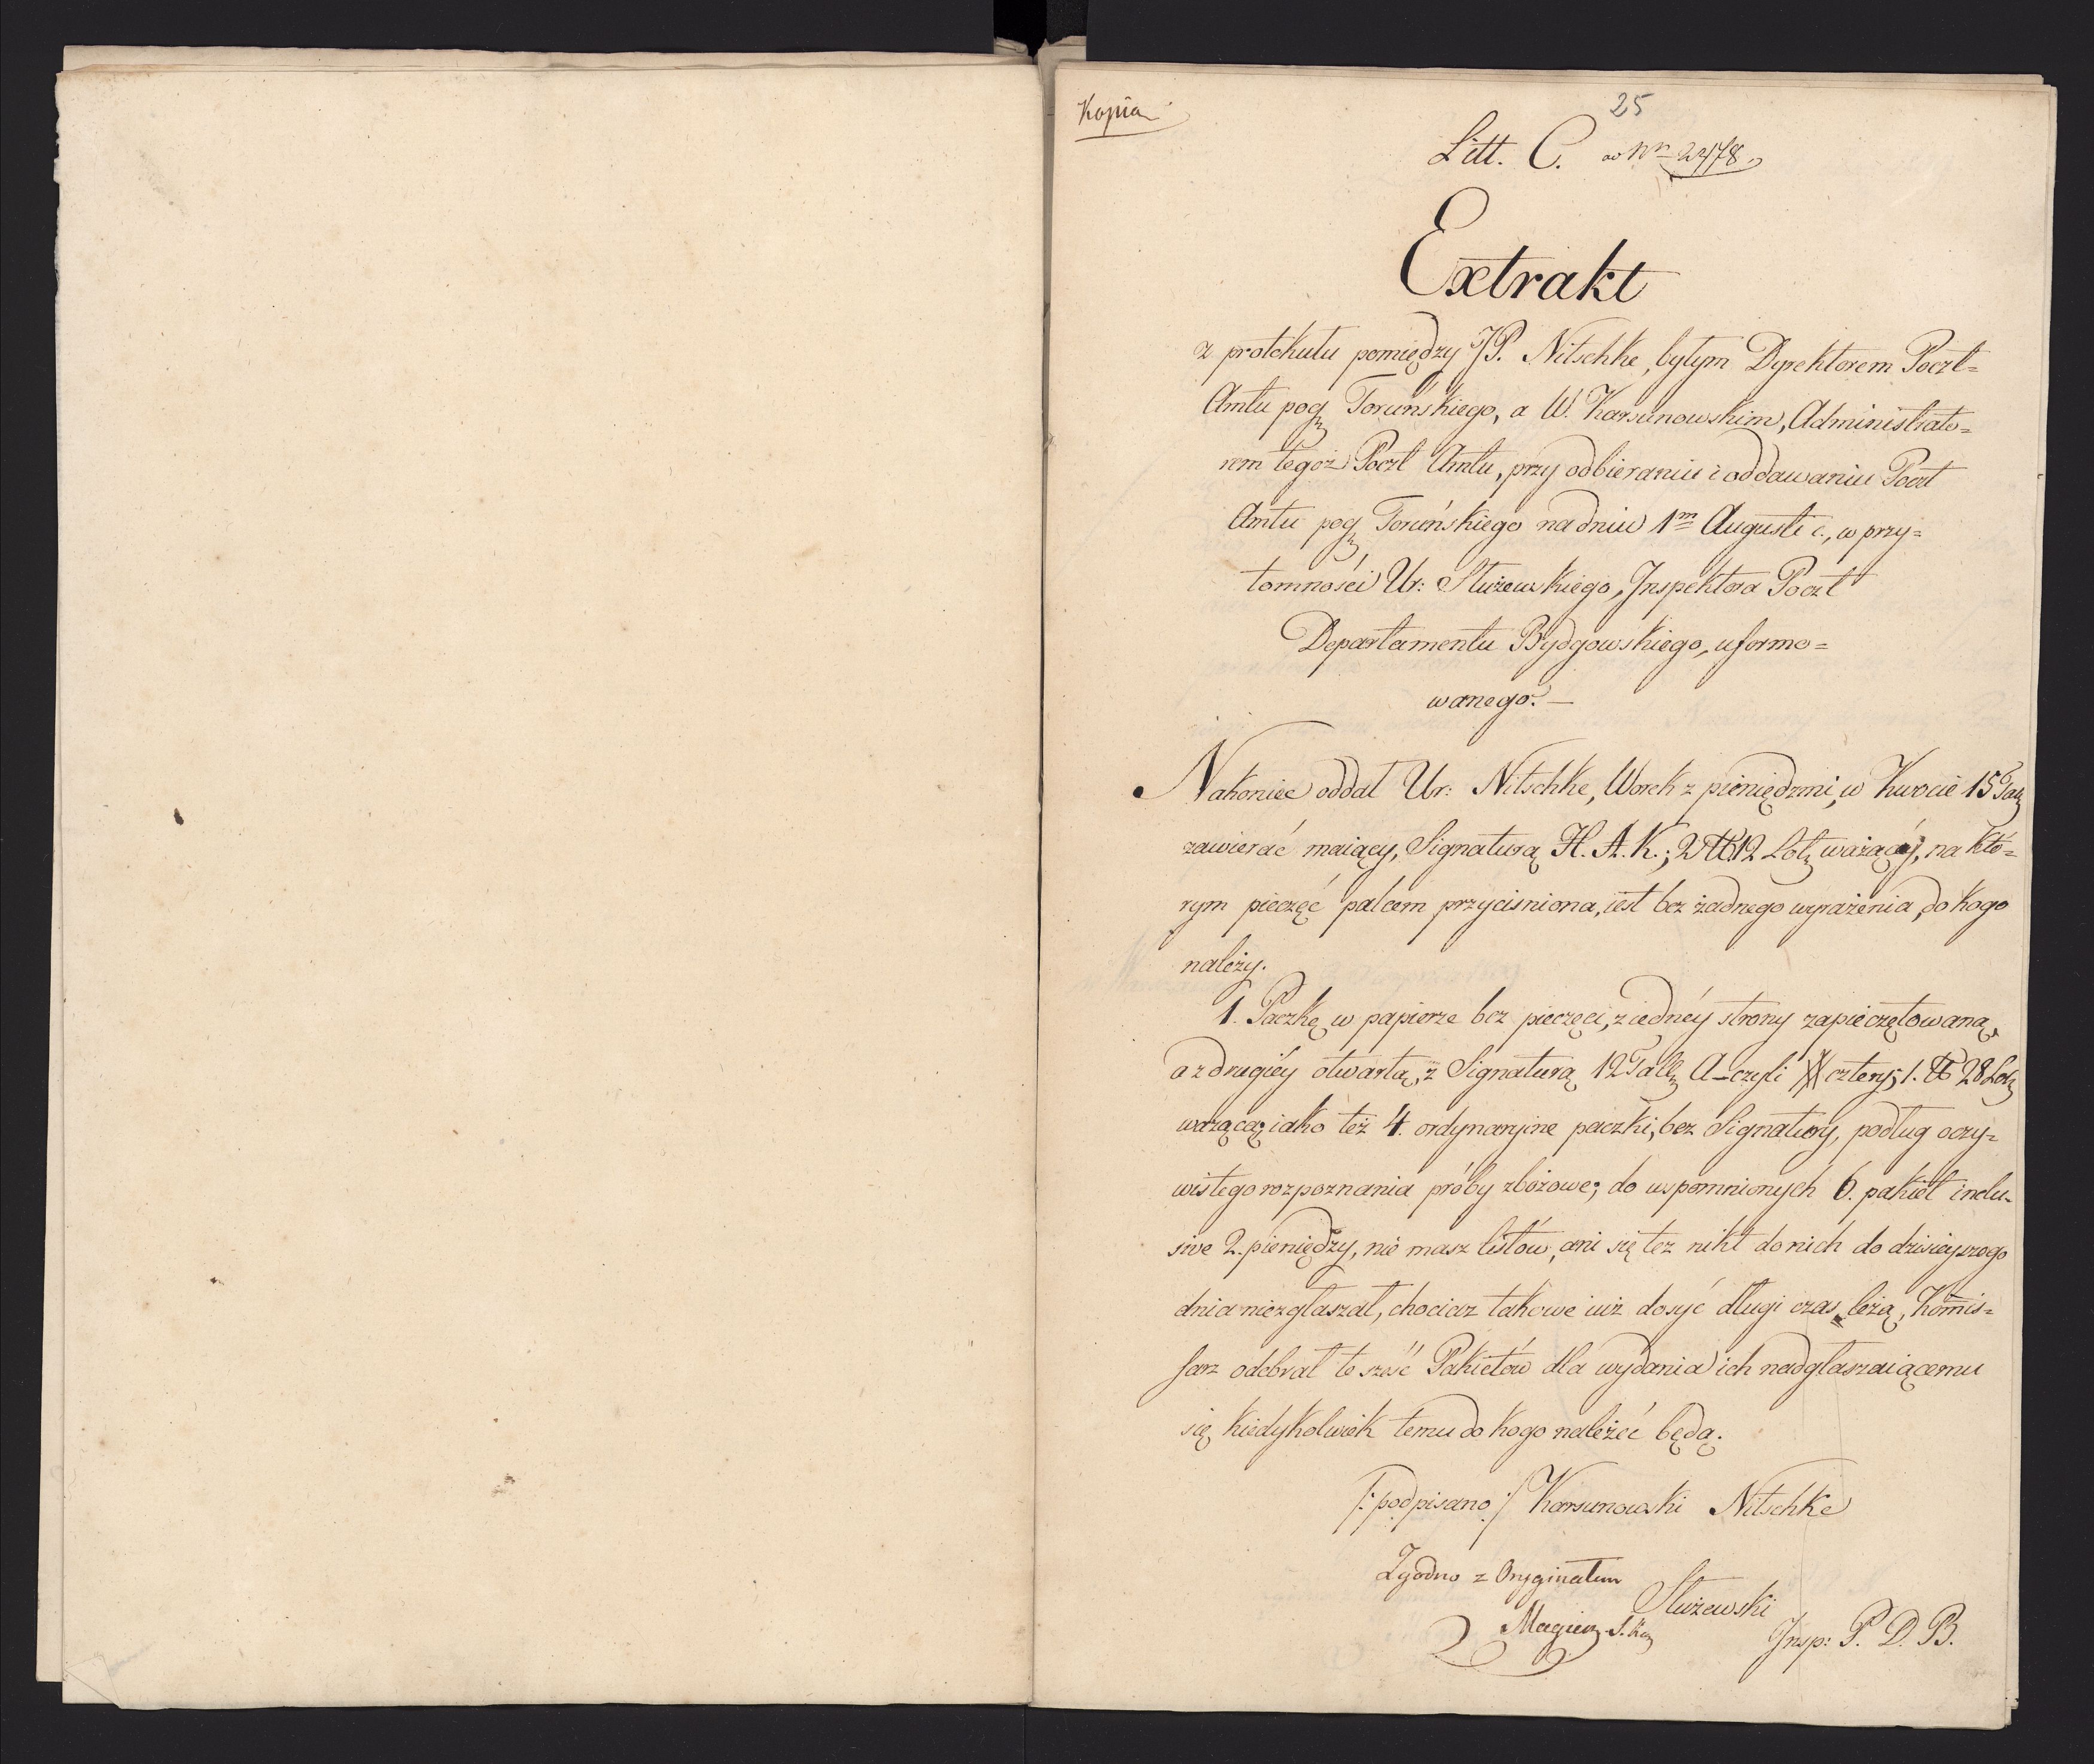 Kopia
25
Litt. C. ad Nrn 2478
Extrakt
z protokułu pomiędzy JP. Nitschke, byłym Dyrektorem Poczt=
Amtu pogz Toruńskiego, a W. Karsunowskim, Administrato=
rem tegoż Poczt Amtu, przy odbieraniu i oddawaniu Poczt
Amtu pogz Toruńskiego na dniu 1m Augusti c., w przy=
tomności Ur: Służewskiego, Inspektora Poczt
Departamentu Bydgowskiego, uformo=
wanego. —
Nakoniec oddał Ur: Nitschke, Worek z pieniędzmi, w Kwocie 15 Talz
zawierać maiący, Signaturą H. A. K.; 2 ℔ 12 Lotz ważący, na któ=
rym pieczęć palcem przyciśniona, iest bez żadnego wyrażenia, do kogo
należy.
1. Paczkę w papierze bez pieczęci, z iednéy strony zapieczętowaną,
a z drugiéy otwartą, z Signaturą 12 Tallz A- czyli cztery; 1. ℔ 28 Lotz
ważącą; iako też 4. ordynaryine paczki, bez Signatury, podług oczy=
wistego rozpoznania próby zbożowe; do wspomnionych 6. pakiet inclu=
sive 2. pieniędzy, nie masz listów, ani się też nikt do nich do dzisieyszego
dnia niezgłaszał, chociaz takowe iuż dosyć długi czas leżą, Kom̄is=
sarz odebrał te sześć Pakietów dla wydania ich nadgłaszaiącemu
się kiedykolwiek temu do kogo należeć będą.
/: podpisano :/ Karsunowski Nitschke
Zgodno z Oryginałem
Służewski
Magier S. Kz
Insp: P. D. B.